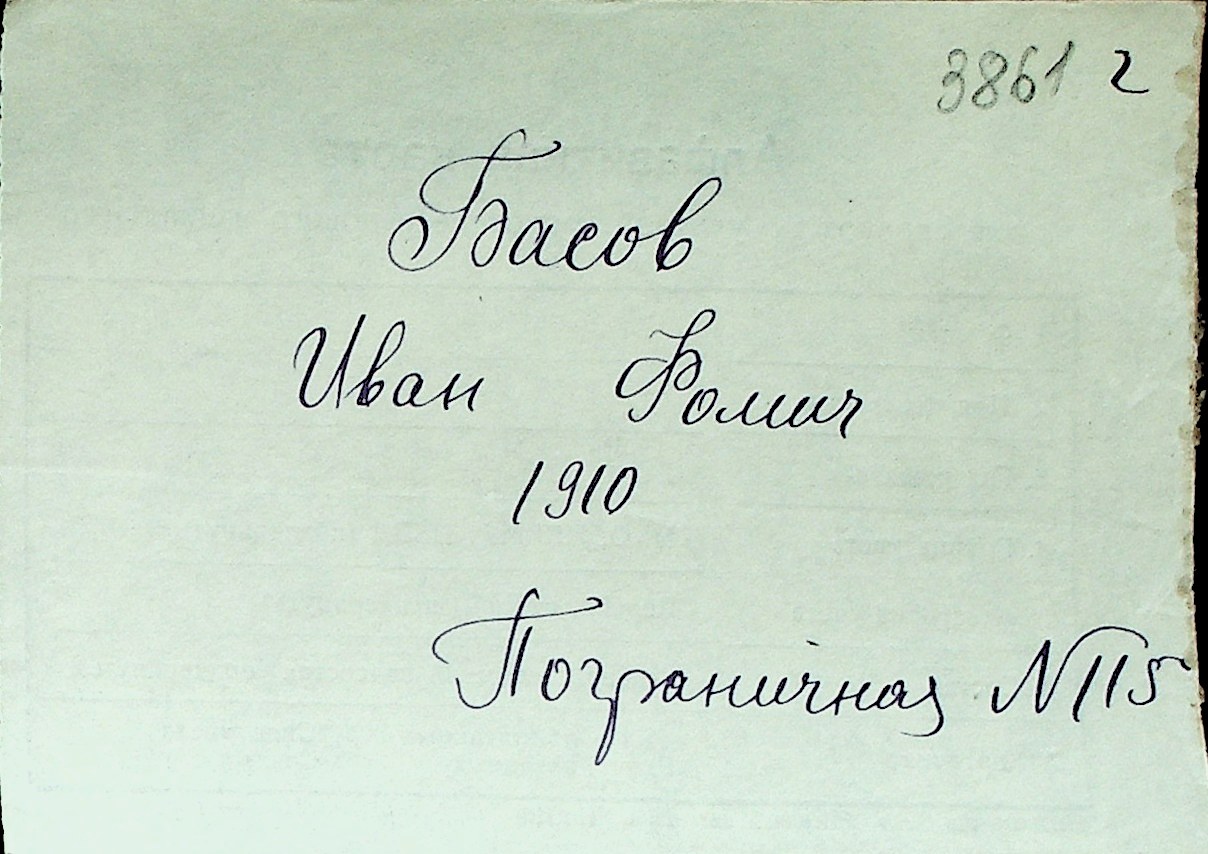 3861 2
Басов
Иван Фомич
1910
Пограничная N 115